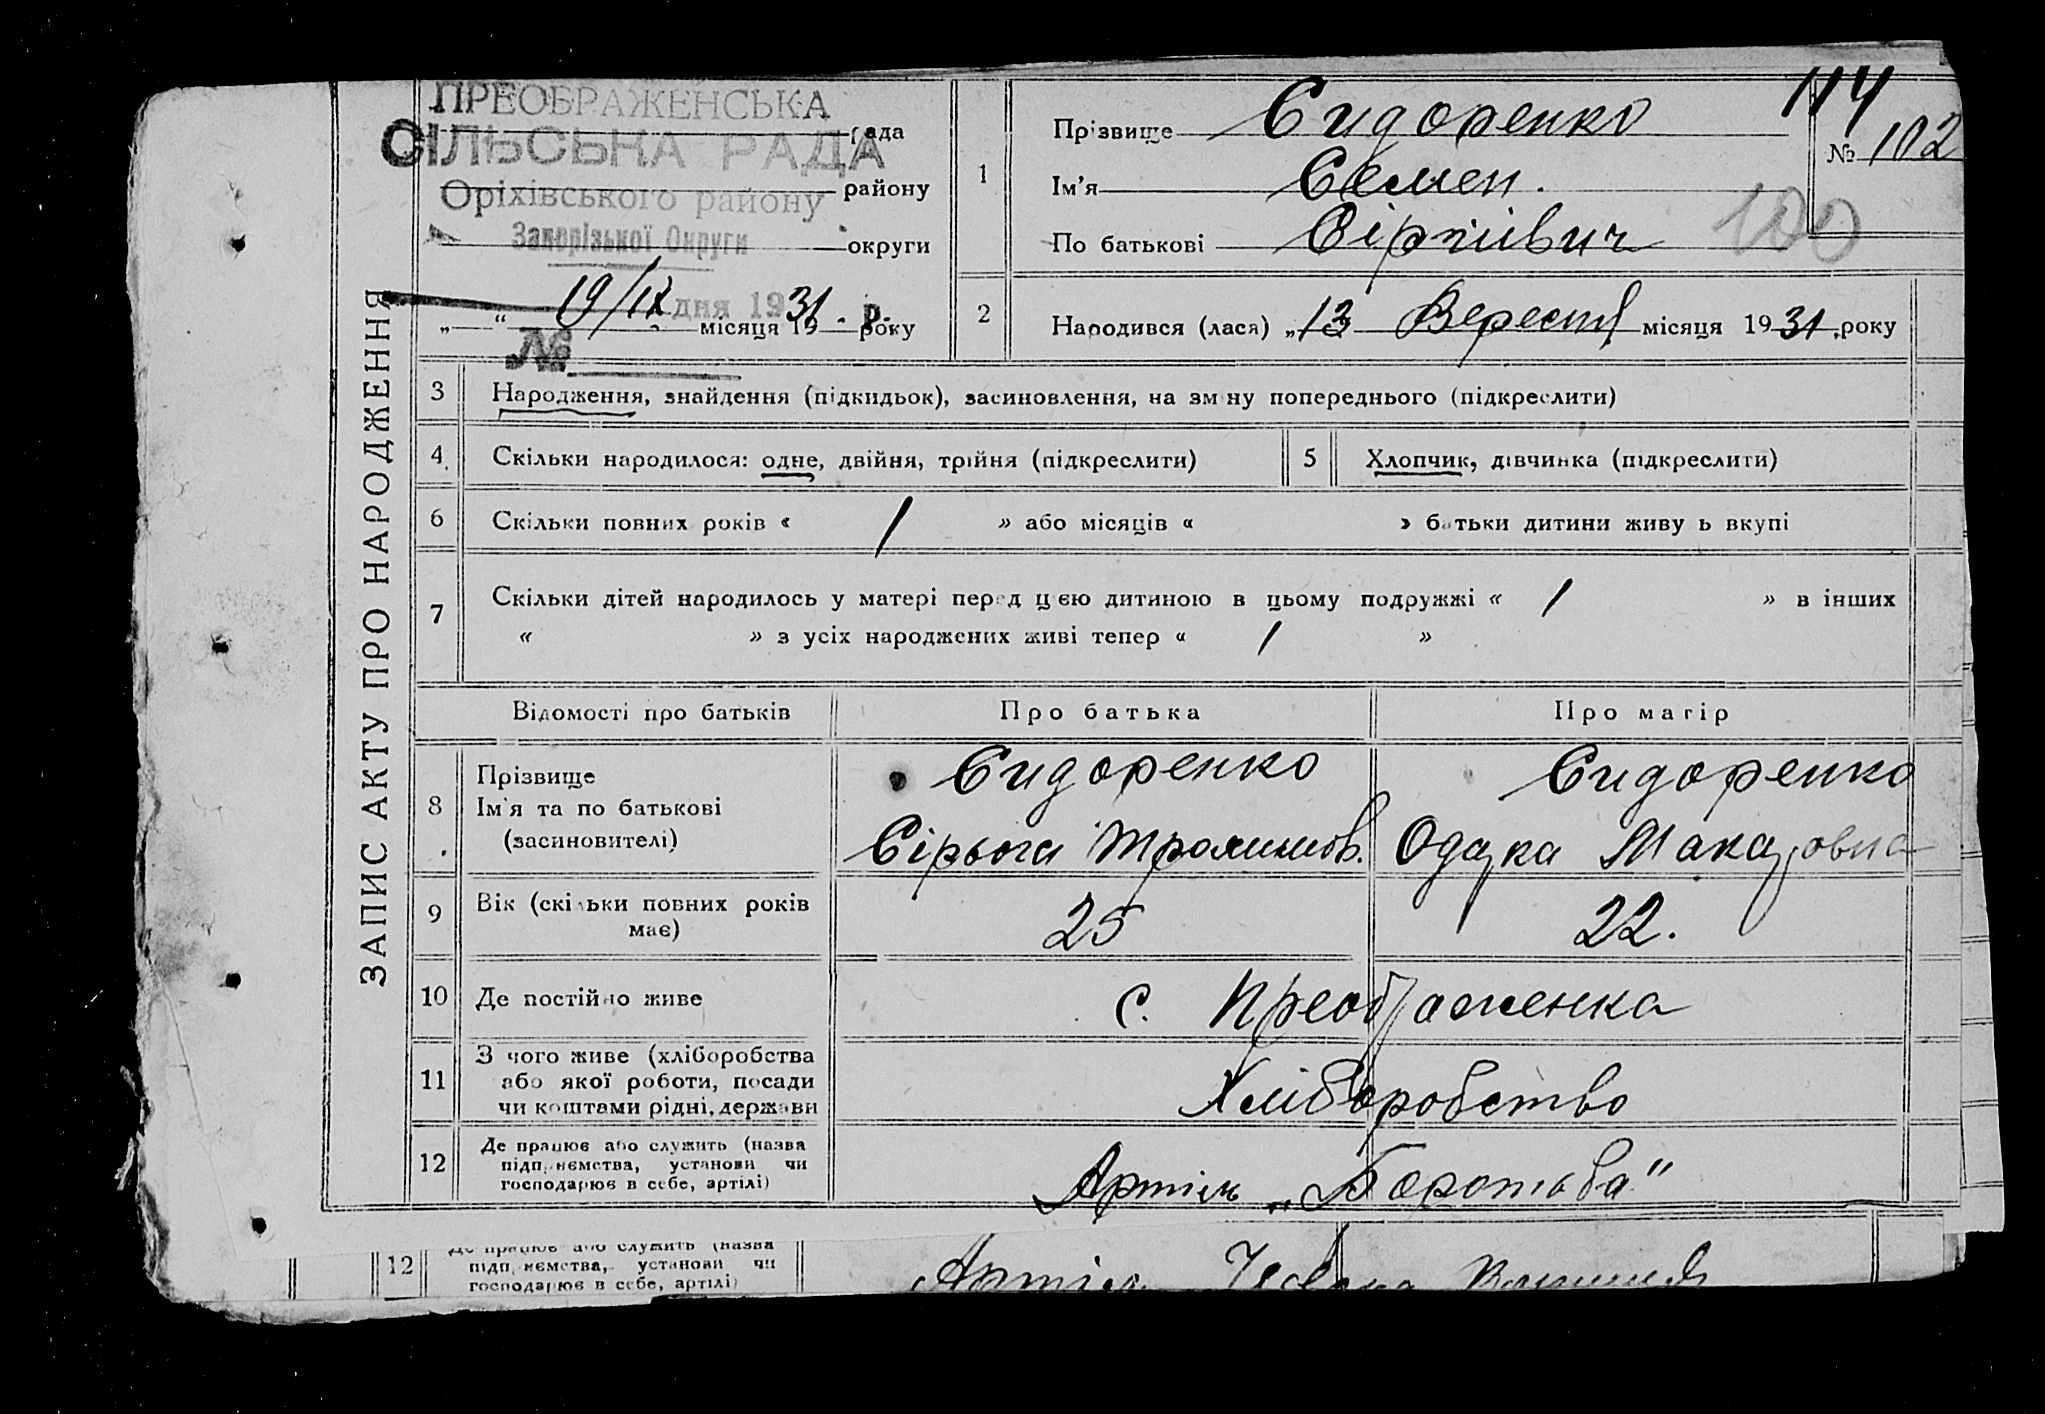 ЗАПИС АКТУ ПРО НАРОДЖЕННЯ
ПРЕОБРАЖЕНСЬКА
рада
СІЛЬСЬКА РАДА
району
Оріхівського району
Запорізької Округи
округи
„ “ 19/IX дня 1931. р.
місяця 19 року
№
1
Прізвище Сидоренко
Ім'я Семен.
По батькові Сіргіївич
114
№ 102
100
2
Народився (лася) „13 Вересня місяця 1931 року
3 Народження, знайдення (підкидьок), засиновлення, на зміну попереднього (підкреслити)
4 Скільки народилося: одне, двійня, трійня (підкреслити)
5 Хлопчик, дівчинка (підкреслити)
6 Скільки повних років « 1 » або місяців « » батьки дитини живуть вкупі
7 Скільки дітей народилось у матері перед цією дитиною в цьому подружжі « 1 » в інших
« » з усіх народжених живі тепер « 1 »
Відомості про батьків Про батька Про матір
8 Прізвище
Ім'я та по батькові
(засиновителі)
Сидоренко
Сірьога
Сидоренко
Одарка Макаровна
9 Вік (скільки повних років
має)
25 22.
10 Де постійно живе с. Преображенка
11 З чого живе (хліборобства
або якої роботи, посади
чи коштами рідні, держави
Хліборобство
12 Де працює або служить (назва
підприємства, установи чи
господарює в себе, артілі)
Артіль „Боротьба"
12 Де працює або служить (назва
підприємства, установи чи
господарює в себе, артілі)
Артіль